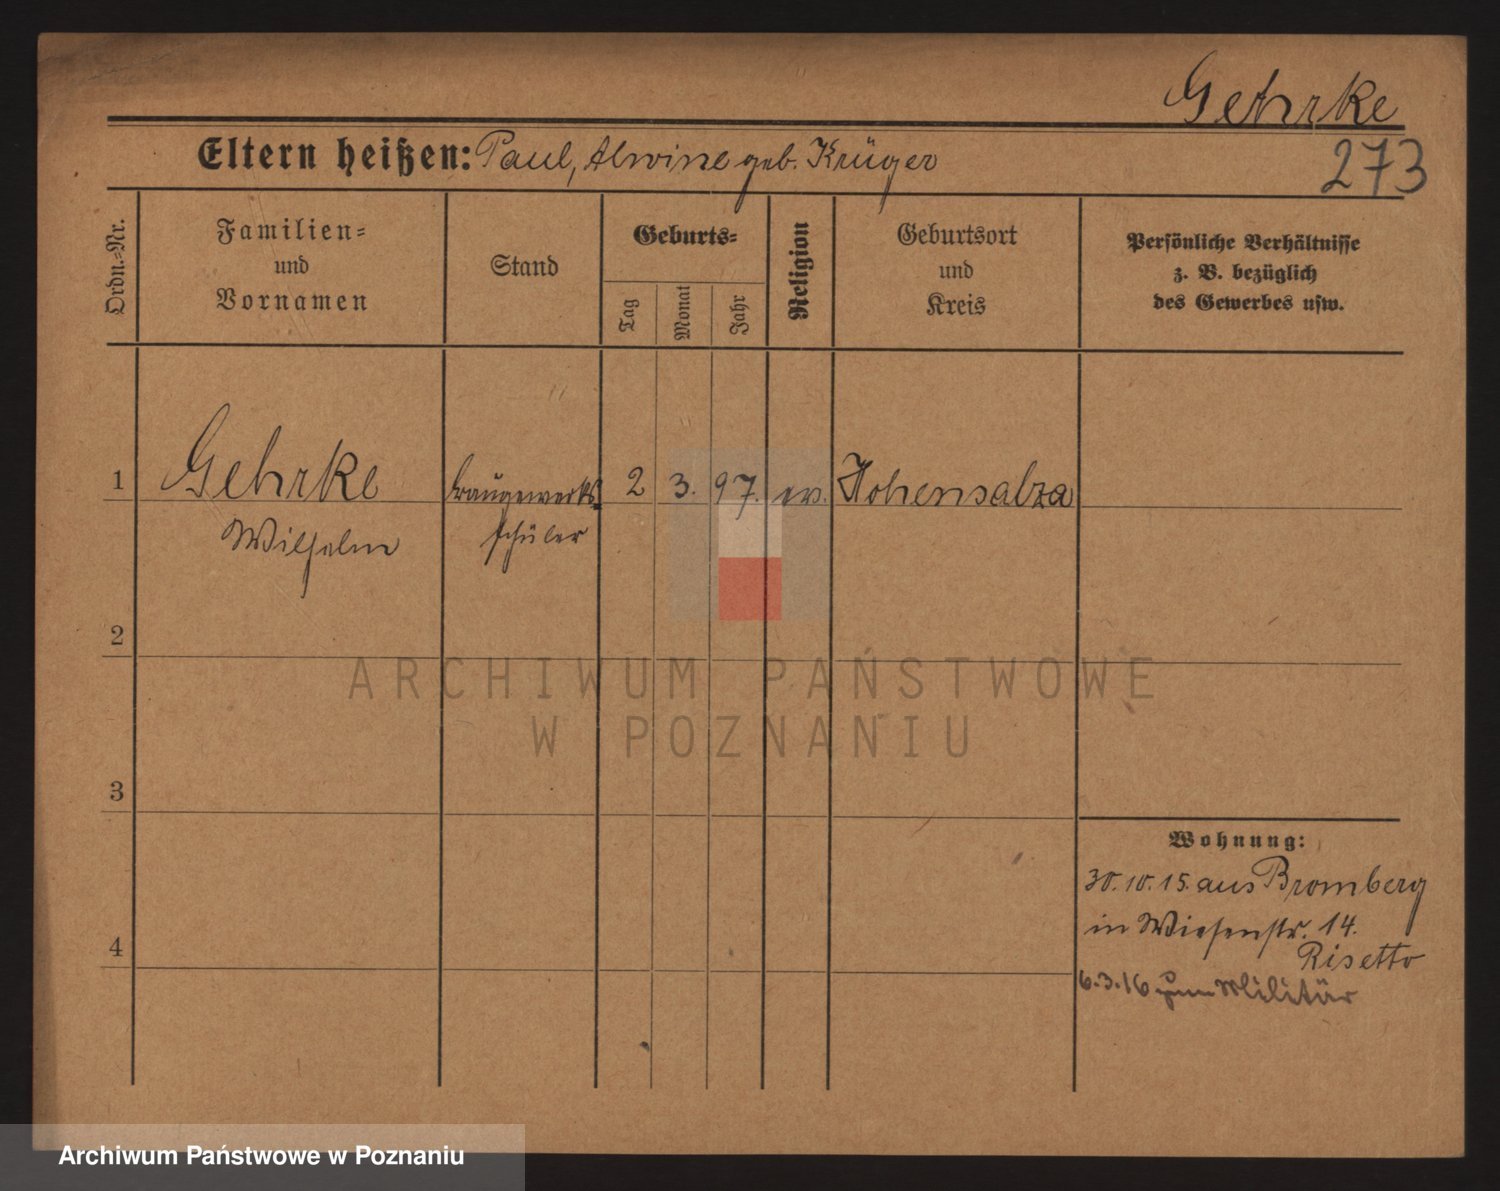 Gehrke
Eltern heißen: Paul, Alwine geb. Krüger
273
Ordn.=Nr.
Familien=
und
Vornamen
Stand
Geburts=
Tag
Monat
Jahr
Religion
Geburtsort
und
Kreis
Persönliche Verhältnisse
z. B. bezüglich
des Gewerbes usw.
1 Gehrke Baugewerks= 2 3. 97. ev. Hohensalza
Wilhelm schüler
2
3
4
Wohnung:
30.10.15. aus Bromberg
in Wiesenstr. 14.
Risetto
6.3.16 zum Militär
ARCHIWUM PAŃSTWOWE
W POZNANIU
Archiwum Państwowe w Poznaniu